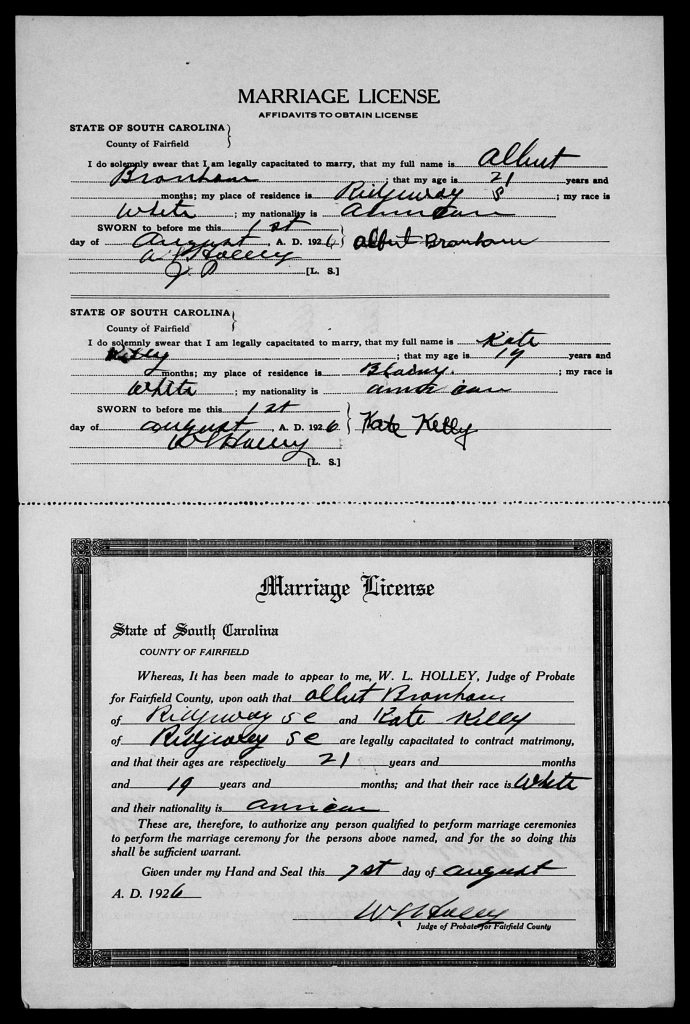 MARRIAGE LICENSE
AFFIDAVITS TO OBTAIN LICENSE
STATE OF SOUTH CAROLINA
County of Fairfield
I do solemnly swear that I am legally capacitated to marry, that my full name is Albert
Branham ; that my age is 21 years and
months; my place of residence is Ridgeway S ; my race is
White ; my nationality is American
SWORN to before me this 1st
day of August, A. D. 1926 Albert Branham
Holley
J. P [L. S.]
STATE OF SOUTH CAROLINA
County of Fairfield
I do solemnly swear that I am legally capacitated to marry, that my full name is Kate
Kelly ; that my age is 19 years and
months; my place of residence is Blaney. ; my race is
White ; my nationality is American
SWORN to before me this 1st
day of August, A. D. 1926 Kate Kelly
W L Holley
[L. S.]
Marriage License
State of South Carolina
COUNTY OF FAIRFIELD
Whereas, It has been made to appear to me, W. L. HOLLEY, Judge of Probate
for Fairfield County, upon oath that Albert Branham
of Ridgeway S C and Kate Kelly
of Ridgeway S C are legally capacitated to contract matrimony,
and that their ages are respectively 21 years and months
and 19 years and months; and that their race is White
and their nationality is American
These are, therefore, to authorize any person qualified to perform marriage ceremonies
to perform the marriage ceremony for the persons above named, and for the so doing this
shall be sufficient warrant.
Given under my Hand and Seal this 1st day of August
A. D. 1926
W L Holley
Judge of Probate for Fairfield County